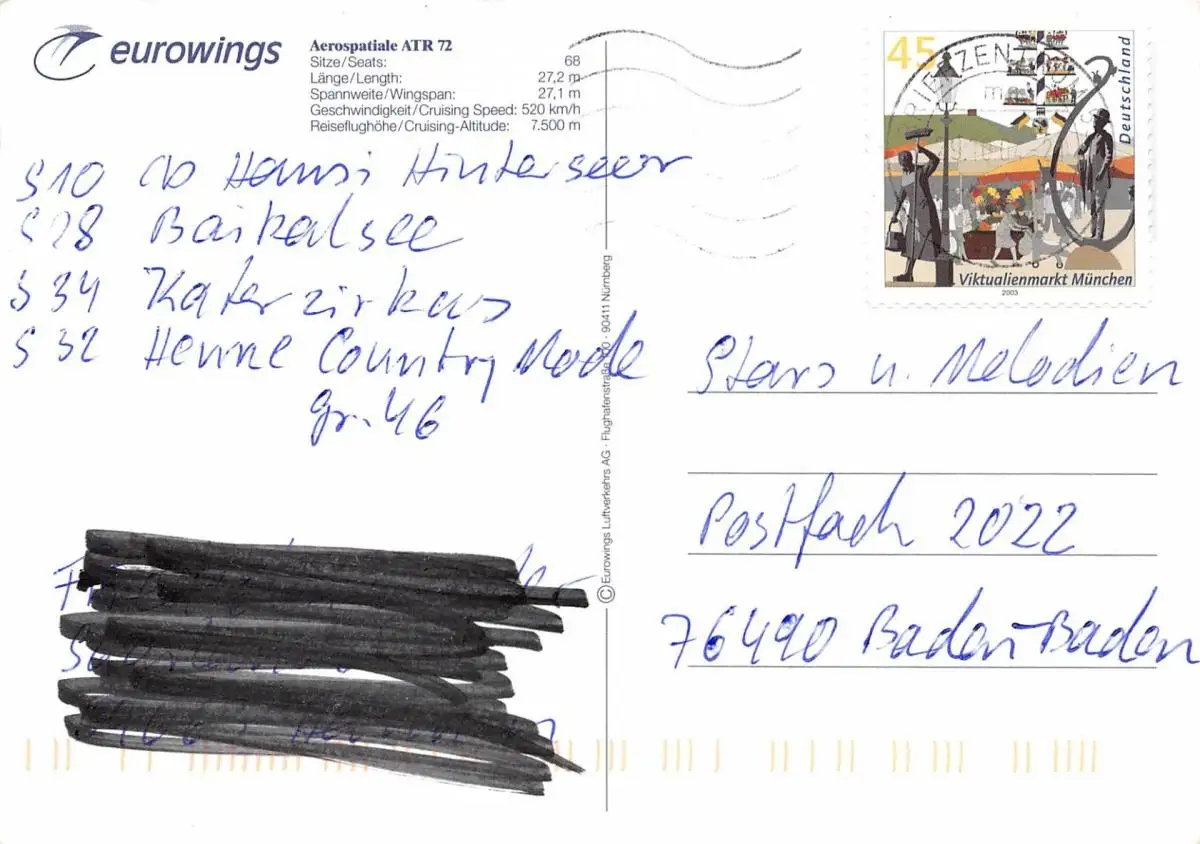 eurowings
Aerospatiale ATR 72
Sitze/Seats: 68
Länge/Length: 27,2 m
Spannweite/Wingspan: 27,1 m
Geschwindigkeit/Cruising Speed: 520 km/h
Reiseflughöhe/Cruising-Altitude: 7.500 m
S10 CD Hansi Hinterseer
S28 Baikalsee
S34 Katerzirkus
S32 Henne Country Mode
Gr. 46
© Eurowings Luftverkehrs AG · Flughafenstraße 100 · 90411 Nürnberg
45
Deutschland
BRIEFZENTRUM
Viktualienmarkt München
2003
Stars u. Melodien
Postfach 2022
76490 Baden-Baden